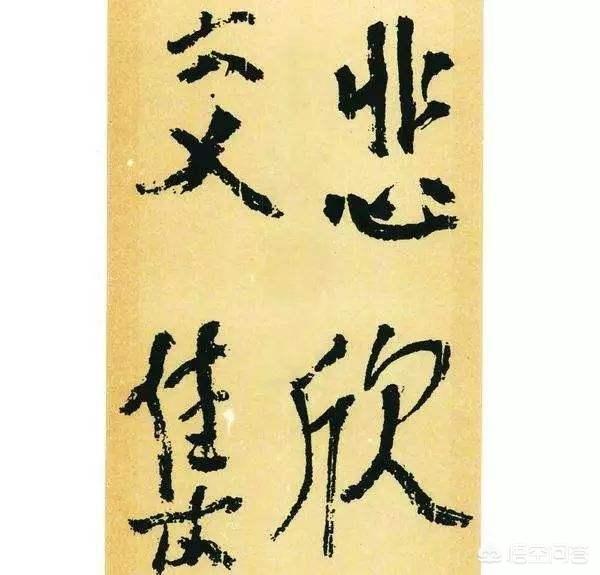 悲欣
交集
悟空问答